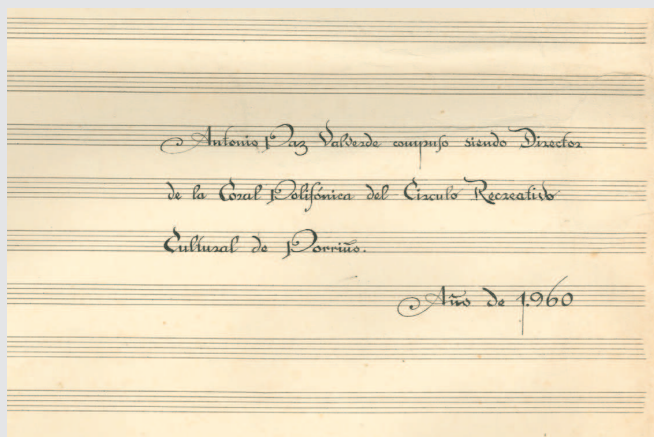 Antonio Paz Valverde compuso siendo Director
de la Coral Polifónica del Circulo Recreativo
Cultural de Porriño.
Año de 1.960